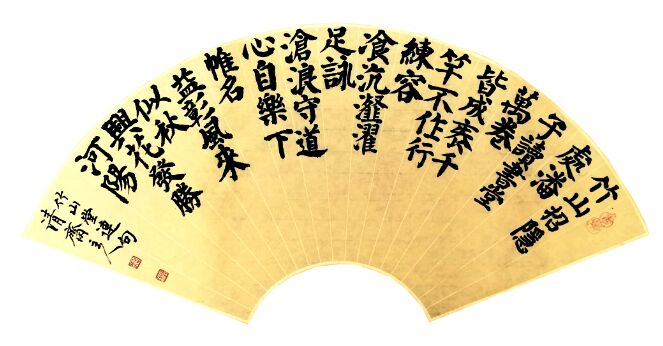 竹山招隱
處潘
子讀書堂
萬卷
皆成袠千
竿不作行
練容
飡沆瀣濯
足詠
滄浪守道
心自樂下
帷名
益彰風來
似秋
興花發勝
河陽
竹山堂連句
清齋主人